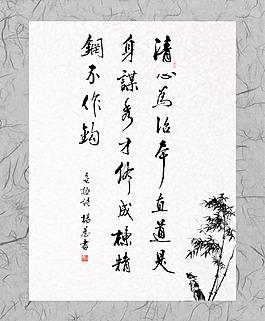 清心為治本直道是
身謀秀才終成棟精
鋼不作鈎
包拯詩 楊書